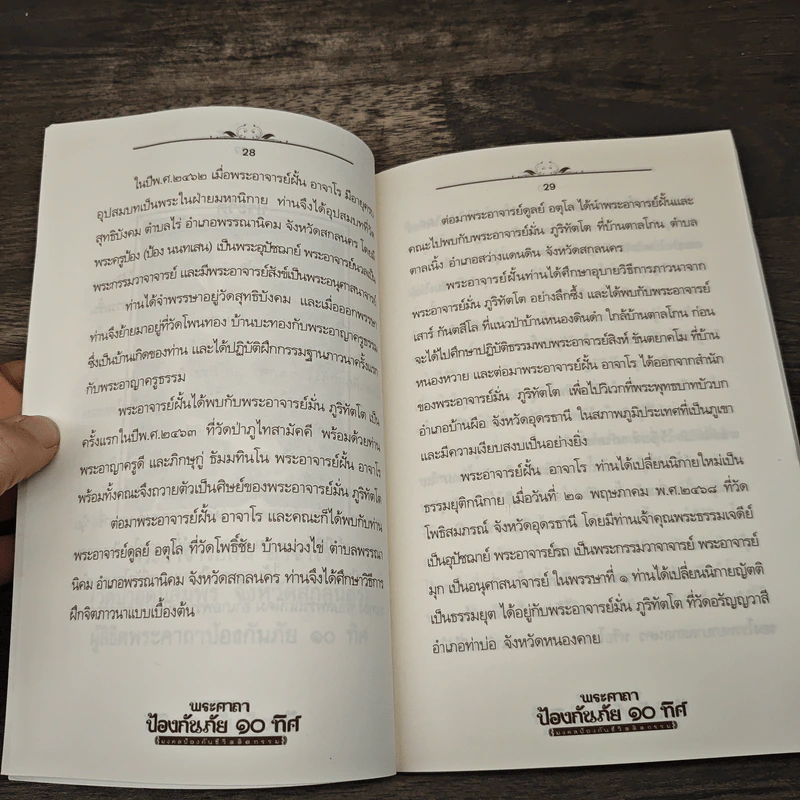 28
ในปีพ.ศ.๒๔๖๒ เมื่อพระอาจารย์ฝั้น อาจาโร มีอายุครบ
อุปสมบทเป็นพระในฝ่ายมหานิกาย ท่านจึงได้อุปสมบทที่วัด
สุทธิบังคม ตำบลไร่ อำเภอพรรณานิคม จังหวัดสกลนคร โดยมี
พระครูป้อง (ป้อง นนทเสน) เป็นพระอุปัชฌาย์ พระอาจารย์นวลเป็น
พระกรรมวาจาจารย์ และมีพระอาจารย์สังข์เป็นพระอนุศาสนาจารย์
ท่านได้จำพรรษาอยู่วัดสุทธิบังคม และเมื่อออกพรรษา
ท่านจึงย้ายมาอยู่ที่วัดโพนทอง บ้านบะทองกับพระอาญาครูธรรม
ซึ่งเป็นบ้านเกิดของท่าน และได้ปฏิบัติฝึกกรรมฐานภาวนาครั้งแรก
กับพระอาญาครูธรรม
พระอาจารย์ฝั้นได้พบกับพระอาจารย์มั่น ภูริทัตโต เป็น
ครั้งแรกในปีพ.ศ.๒๔๖๓ ที่วัดป่าภูไทสามัคคี พร้อมด้วยท่าน
พระอาญาครูดี และภิกษุกู่ ธัมมทินโน พระอาจารย์ฝั้น อาจาโร
พร้อมทั้งคณะจึงถวายตัวเป็นศิษย์ของพระอาจารย์มั่น ภูริทัตโต
ต่อมาพระอาจารย์ฝั้น อาจาโร และคณะก็ได้พบกับท่าน
พระอาจารย์ดูลย์ อตุโล ที่วัดโพธิ์ชัย บ้านม่วงไข่ ตำบลพรรณา
นิคม อำเภอพรรณานิคม จังหวัดสกลนคร ท่านจึงได้ศึกษาวิธีการ
ฝึกจิตภาวนาแบบเบื้องต้น
พระคาถา
ป้องกันภัย ๑๐ ทิศ
มงคลป้องกันชีวิตลิตกรรม
29
ต่อมาพระอาจารย์ดูลย์ อตุโล ได้นำพระอาจารย์ฝั้นและ
คณะไปพบกับพระอาจารย์มั่น ภูริทัตโต ที่บ้านตาลโกน ตำบล
ตาลเนิ้ง อำเภอสว่างแดนดิน จังหวัดสกลนคร
พระอาจารย์ฝั้นท่านได้ศึกษาอุบายวิธีการภาวนาจาก
พระอาจารย์มั่น ภูริทัตโต อย่างลึกซึ้ง และได้พบกับพระอาจารย์
เสาร์ กันตสีโล ที่แนวป่าบ้านหนองดินดำ ใกล้บ้านตาลโกน ก่อน
จะได้ไปศึกษาปฏิบัติธรรมพบพระอาจารย์สิงห์ ขันตยาคโม ที่บ้าน
หนองหวาย และต่อมาพระอาจารย์ฝั้น อาจาโร ได้ออกจากสำนัก
ของพระอาจารย์มั่น ภูริทัตโต เพื่อไปวิเวกที่พระพุทธบาทบัวบก
อำเภอบ้านผือ จังหวัดอุดรธานี ในสภาพภูมิประเทศที่เป็นภูเขา
และมีความเงียบสงบเป็นอย่างยิ่ง
พระอาจารย์ฝั้น อาจาโร ท่านได้เปลี่ยนนิกายใหม่เป็น
ธรรมยุติกนิกาย เมื่อวันที่ ๒๑ พฤษภาคม พ.ศ.๒๔๖๘ ที่วัด
โพธิสมภรณ์ จังหวัดอุดรธานี โดยมีท่านเจ้าคุณพระธรรมเจดีย์
เป็นอุปัชฌาย์ พระอาจารย์รถ เป็นพระกรรมวาจาจารย์ พระอาจารย์
มุก เป็นอนุศาสนาจารย์ ในพรรษาที่ ๑ ท่านได้เปลี่ยนนิกายญัตติ
เป็นธรรมยุต ได้อยู่กับพระอาจารย์มั่น ภูริทัตโต ที่วัดอรัญญวาสี
อำเภอท่าบ่อ จังหวัดหนองคาย
พระคาถา
ป้องกันภัย ๑๐ ทิศ
มงคลป้องกันชีวิตลิตกรรม